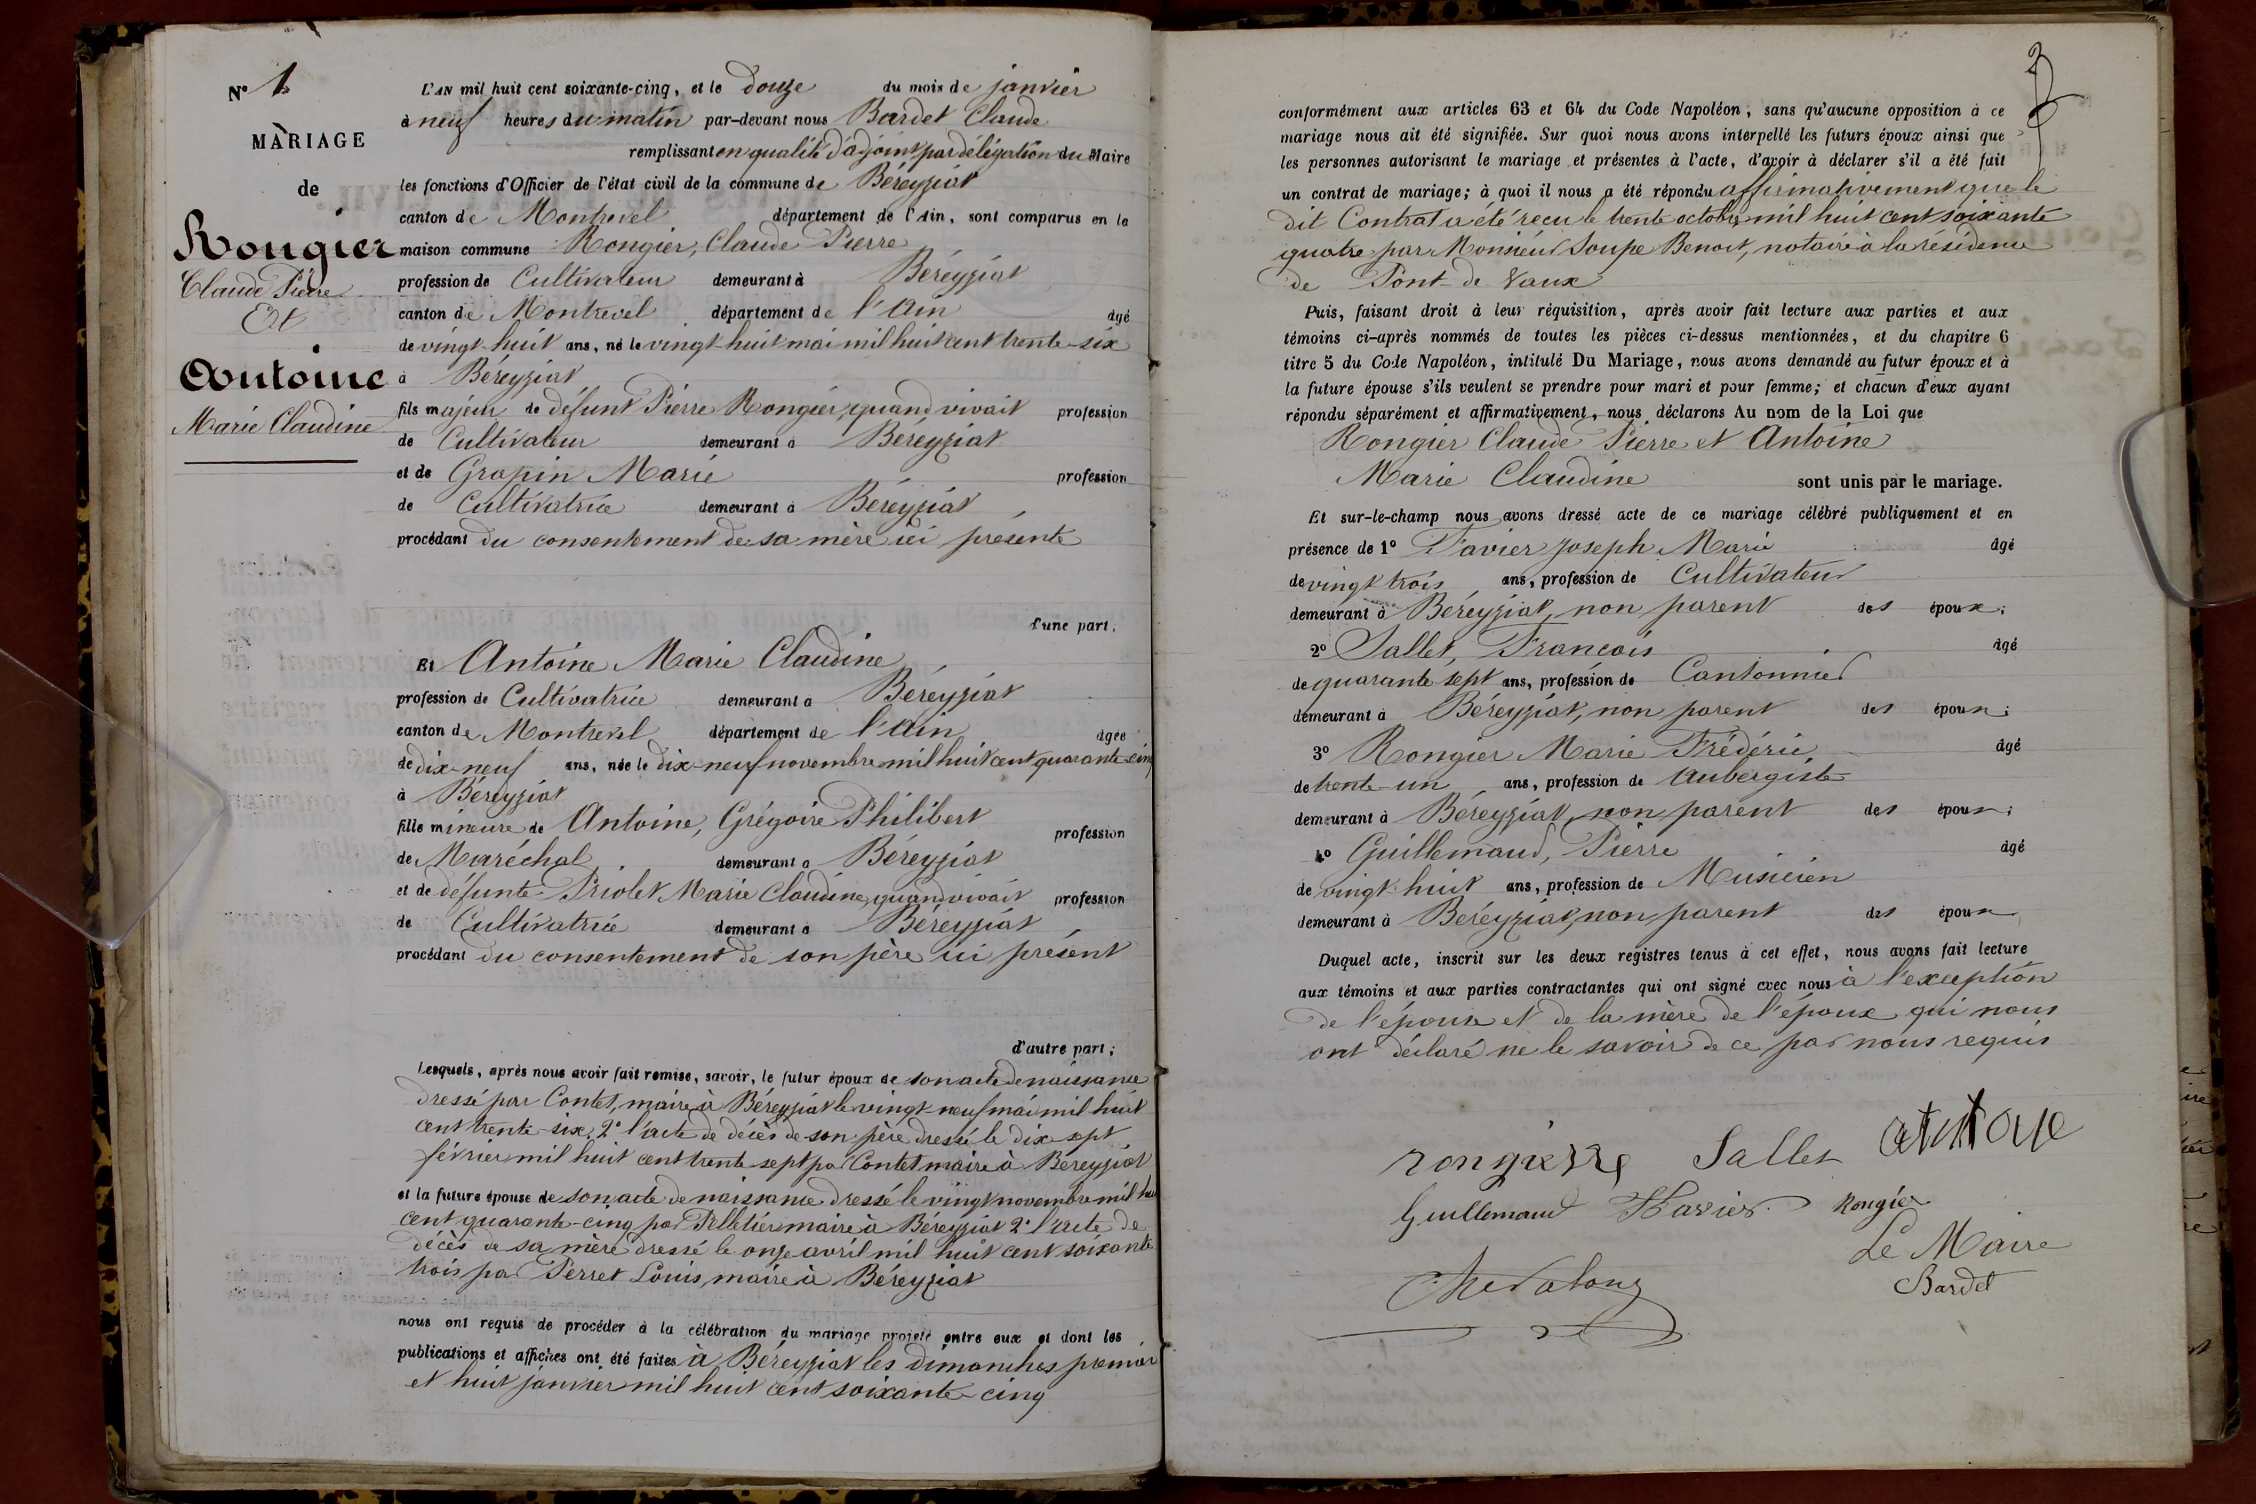 N° 1
MARIAGE
de
Rongier
Claude Pierre
Et
Antoine
Marie Claudine
L'AN mil huit cent soixante-cinq, et le douze du mois de janvier
à neuf heures du matin par-devant nous Bardet Claude
remplissant en qualité d'adjoint, par délégation du Maire
les fonctions d'Officier de l'état civil de la commune de Béreyziat
canton de Montrevel département de l'Ain, sont comparus en la
maison commune Rongier, Claude Pierre
profession de Cultivateur demeurant à Béreyziat
canton de Montrevel département de l'Ain âgé
de vingt-huit ans, né le vingt-huit mai mil huit cent trente-six
à Béreyziat
fils majeur de défunt Pierre Rongier, quand vivait profession
de Cultivateur demeurant à Béreyziat
et de Grapin Marie profession
de Cultivatrice demeurant à Béreyziat
procédant du consentement de sa mère ici présente
d'une part,
Et Antoine Marie Claudine
profession de Cultivatrice demeurant à Béreyziat
canton de Montrevel département de l'Ain âgée
de dix-neuf ans, née le dix-neuf novembre mil huit cent quarante-cinq
à Béreyziat
fille mineure de Antoine, Grégoire Philibert profession
de Maréchal demeurant à Béreyziat
et de défunte Priolet Marie Claudine, quand vivait profession
de Cultivatrice demeurant à Béreyziat
procédant du consentement de son père ici présent
d'autre part;
Lesquels, après nous avoir fait remise, savoir, le futur époux de son acte de naissance
dressé par Contet, maire à Béreyziat le vingt-neuf mai mil huit
cent trente-six, 2° l'acte de décès de son père dressé le dix-sept
février mil huit cent trente-sept par Contet maire à Béreyziat
et la future épouse de son acte de naissance dressé le vingt novembre mil huit
cent quarante-cinq par Pelletier maire à Béreyziat 2° l'acte de
décès de sa mère dressé le onze avril mil huit cent soixante
trois par Perret Louis, maire à Béreyziat
nous ont requis de procéder à la célébration du mariage projeté entre eux et dont les
publications et affiches ont été faites à Béreyziat les dimanches premier
et huit janvier mil huit cent soixante-cinq
2
conformément aux articles 63 et 64 du Code Napoléon, sans qu'aucune opposition à ce
mariage nous ait été signifiée. Sur quoi nous avons interpellé les futurs époux ainsi que
les personnes autorisant le mariage et présentes à l'acte, d'avoir à déclarer s'il a été fait
un contrat de mariage; à quoi il nous a été répondu affirmativement que le
dit Contrat a été reçu le trente octobre mil huit cent soixante
quatre par Monsieur Soupe Benoit, notaire à la résidence
de Pont-de Vaux
Puis, faisant droit à leur réquisition, après avoir fait lecture aux parties et aux
témoins ci-après nommés de toutes les pièces ci-dessus mentionnées, et du chapitre 6
titre 5 du Code Napoléon, intitulé Du Mariage, nous avons demandé au futur époux et à
la future épouse s'ils veulent se prendre pour mari et pour femme; et chacun d'eux ayant
répondu séparément et affirmativement, nous déclarons Au nom de la Loi que
Rongier Claude Pierre et Antoine
Marie Claudine sont unis par le mariage.
Et sur-le-champ nous avons dressé acte de ce mariage célébré publiquement et en
présence de 1° Favier Joseph Marie âgé
de vingt trois ans, profession de Cultivateur
demeurant à Béreyziat, non parent des époux;
2° Sallet, François âgé
de quarante sept ans, profession de Cantonnier
demeurant à Béreyziat, non parent des époux;
3° Rongier Marie Frédéric âgé
de trente-un ans, profession de Aubergiste
demeurant à Béreyziat, non parent des époux;
4° Guillemaud, Pierre âgé
de vingt-huit ans, profession de Musicien
demeurant à Béreyziat, non parent des époux
Duquel acte, inscrit sur les deux registres tenus à cet effet, nous avons fait lecture
aux témoins et aux parties contractantes qui ont signé avec nous à l'exception
de l'épouse et de la mère de l'époux qui nous
ont déclaré ne le savoir de ce par nous requis
Sallet
Guillemaud Favier Rongier
Le Maire
Bardet